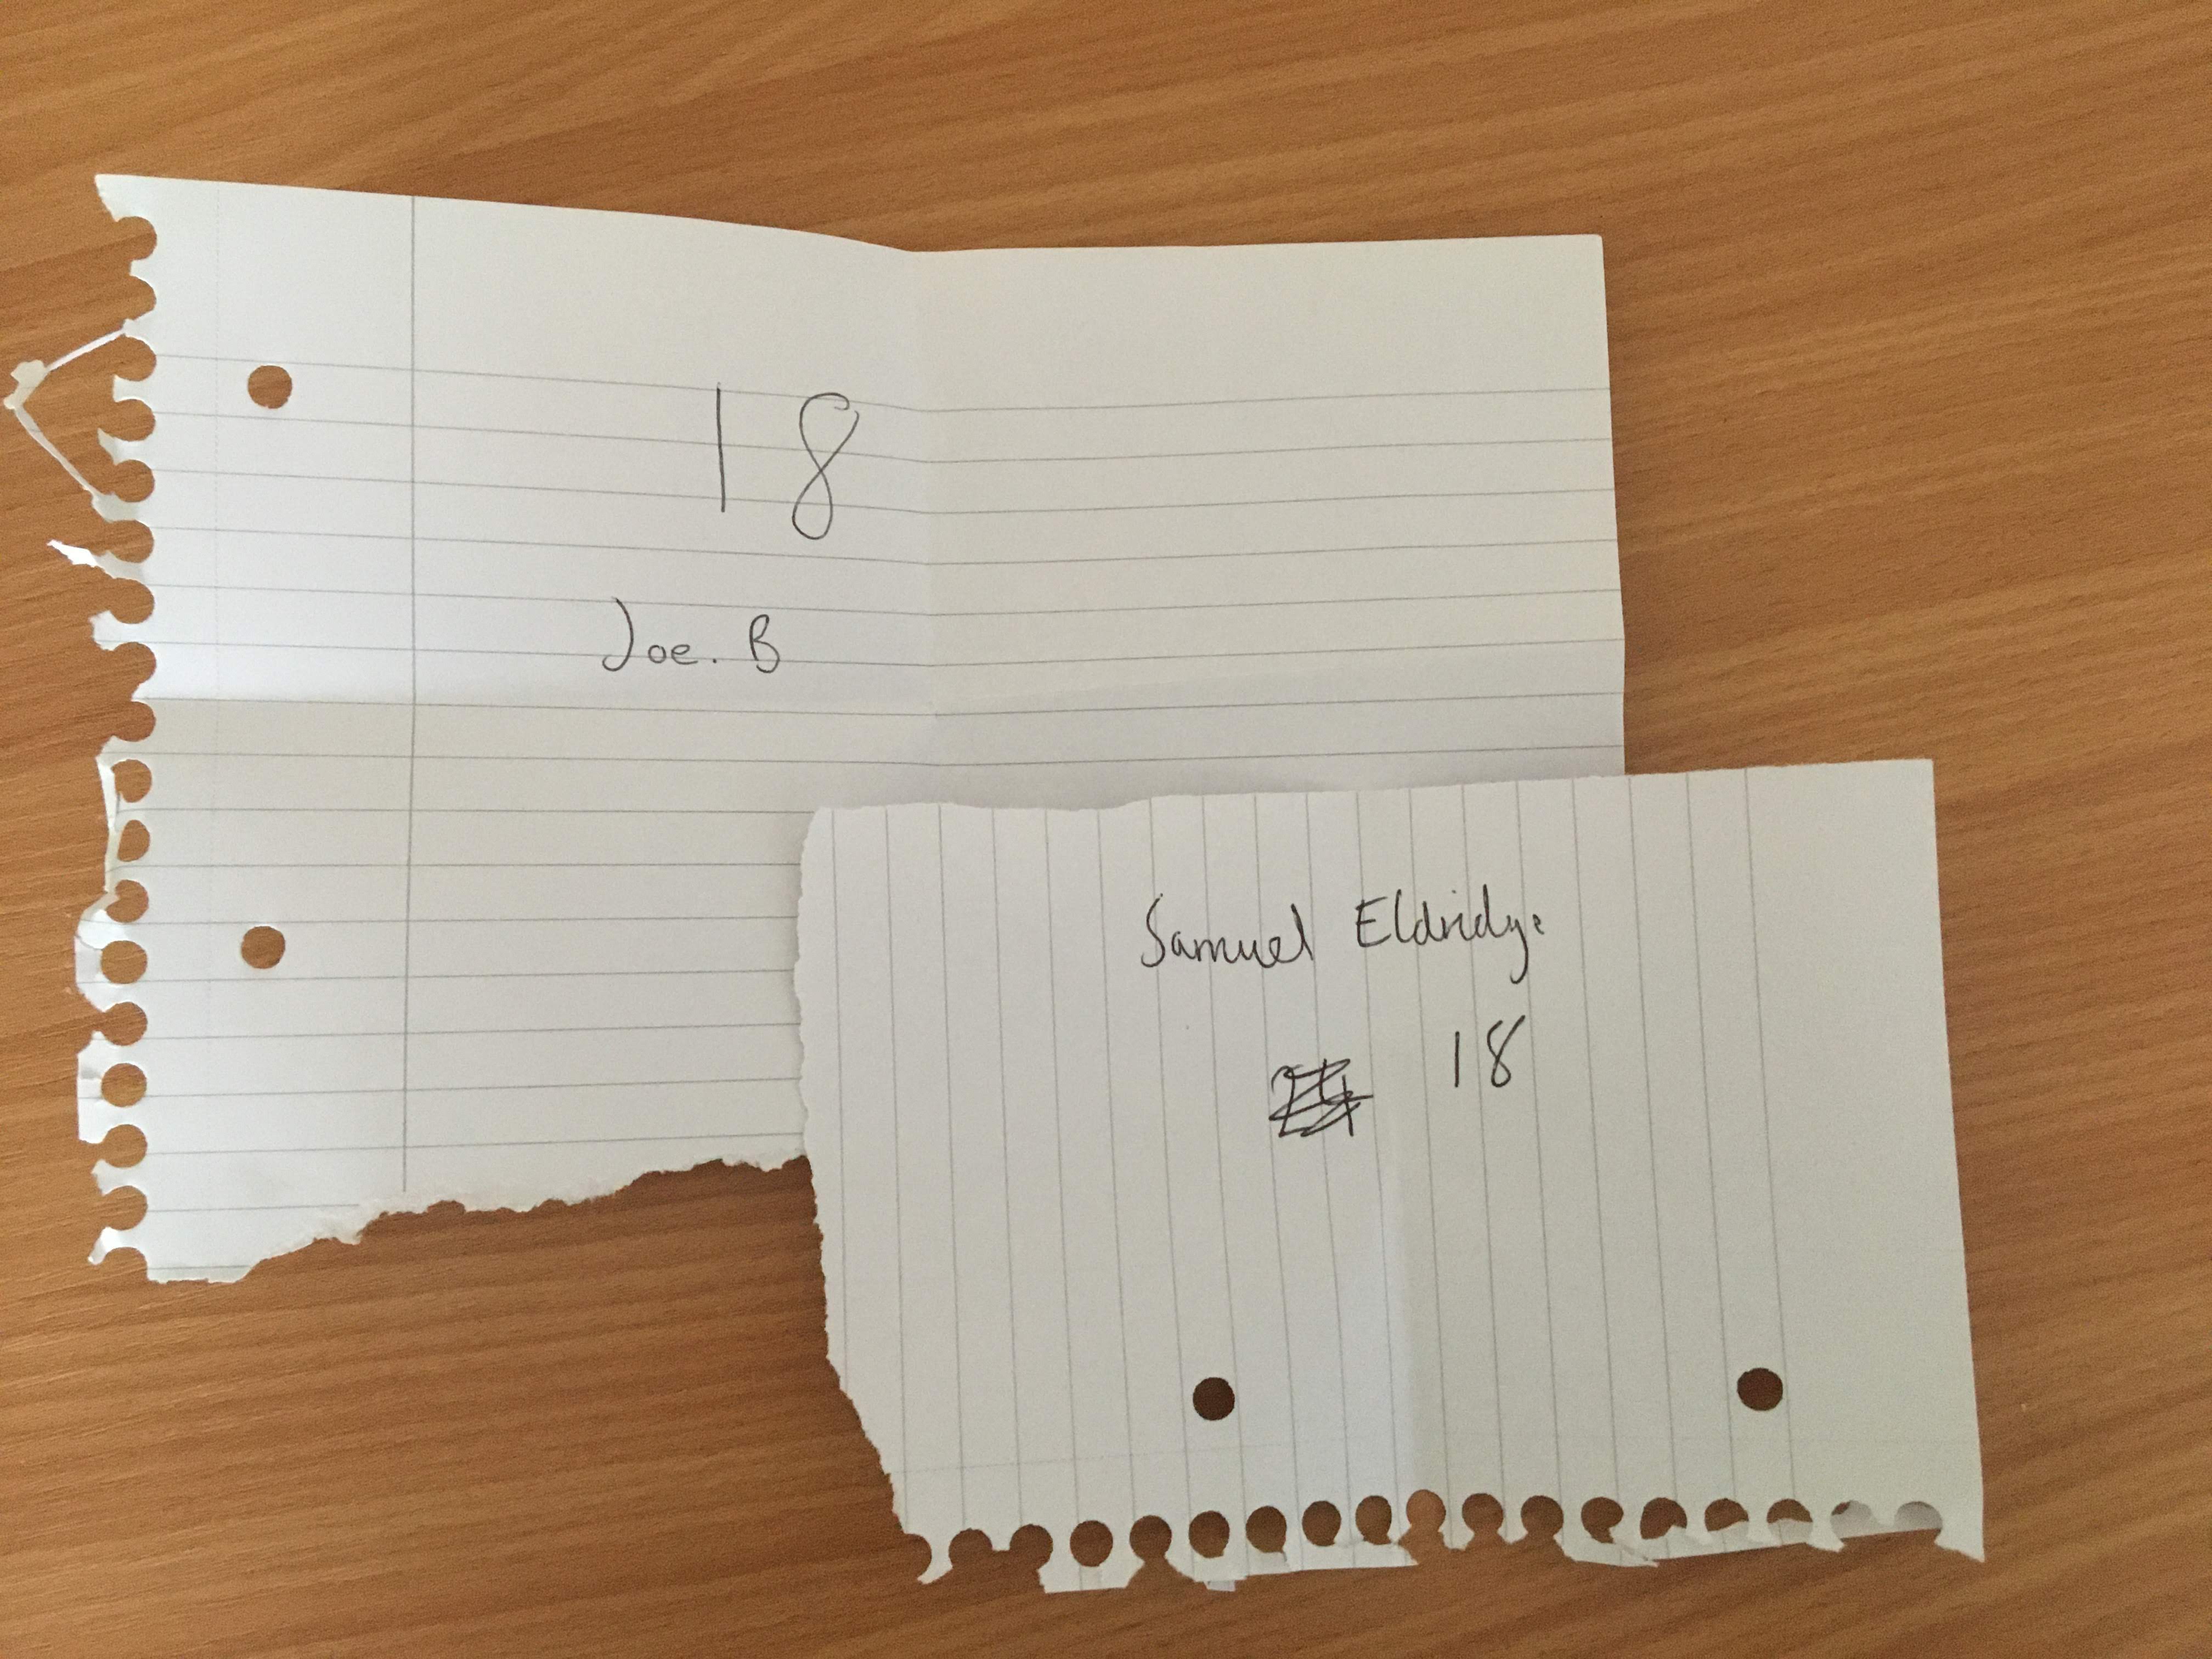 18
Joe. B
Samuel Eldridge
18